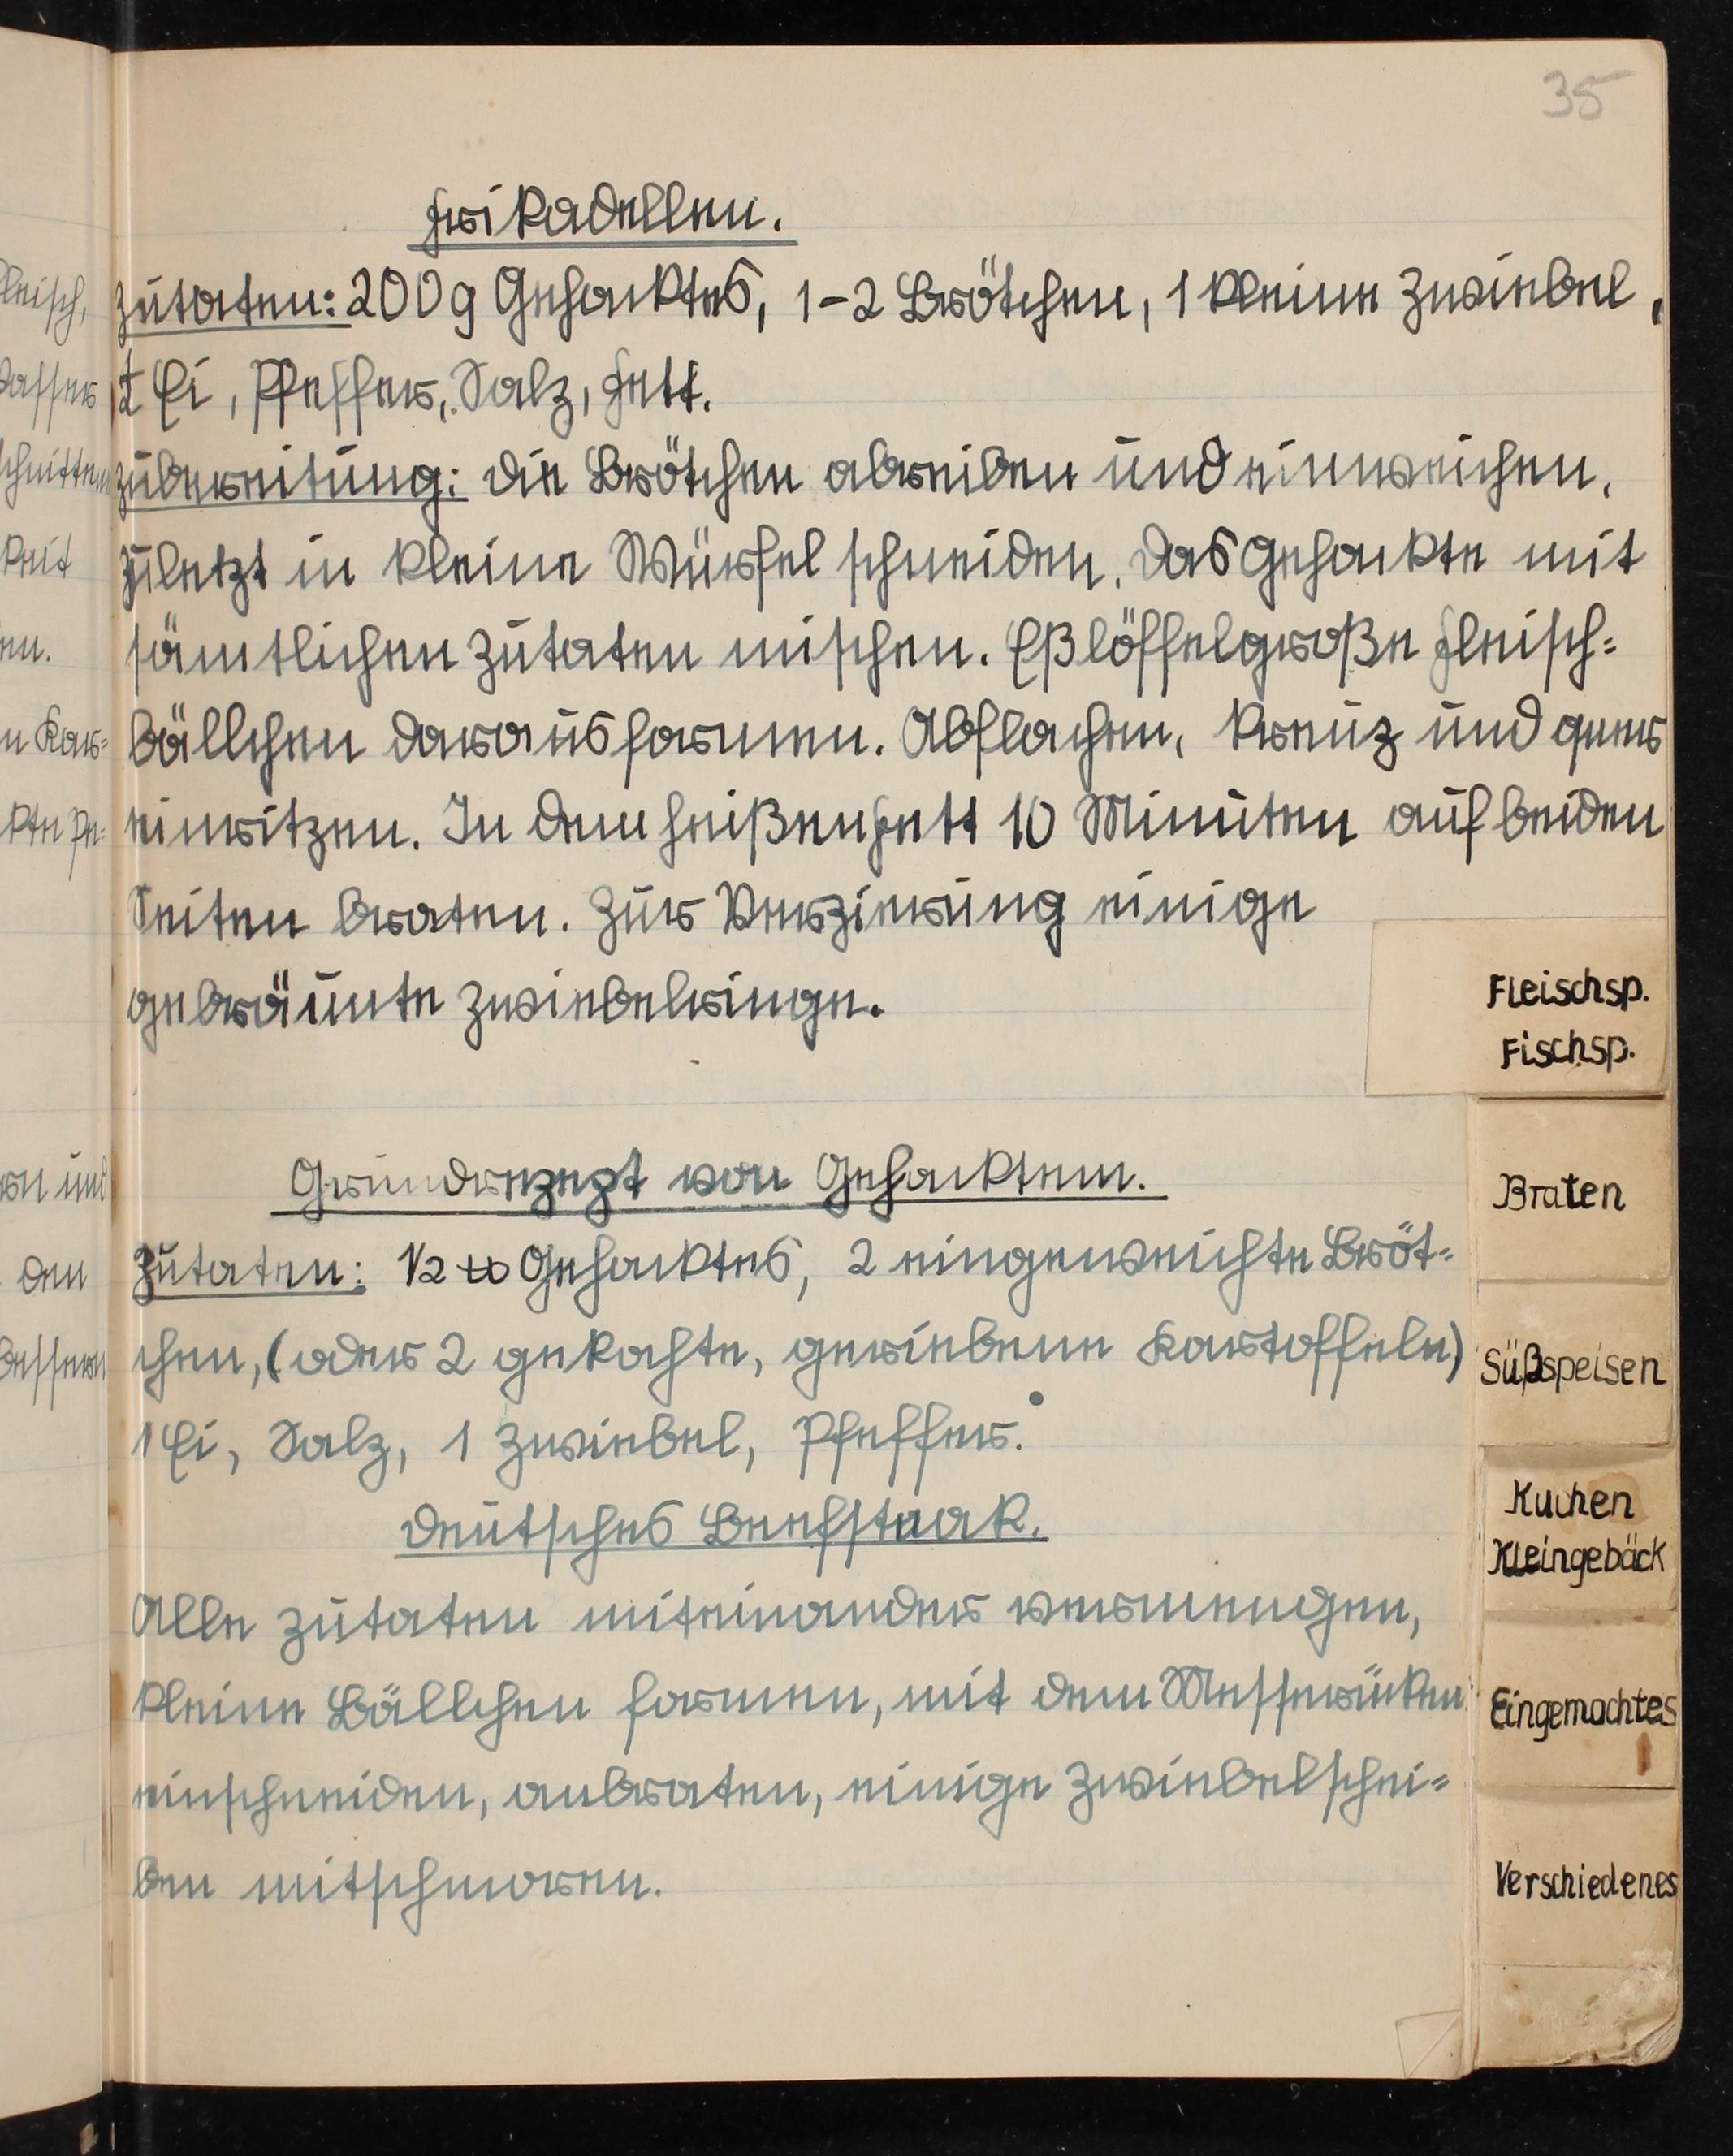 35
Frikadellen.
Zutaten: 200 g Gehacktes, 1-2 Brötchen, 1 kleine Zwiebel,
½ Ei, Pfeffer, Salz, Fett.
Zubereitung: Die Brötchen abreiben und einweichen.
Zuletzt in kleine Würfel schneiden. Das Gehackte mit
sämtlichen Zutaten mischen. Eßlöffelgroße Fleisch=
bällchen daraus formen. Abflachen, kreuz und quer
einritzen. In dem heißen Fett 10 Minuten auf beiden
Seiten braten. Zur Verzierung einige
gebräunte Zwiebelringe.
Grundrezept von Gehacktem.
Zutaten: 1/2 ℔ Gehacktes, 2 eingeweichte Bröt=
chen, (oder 2 gekochte, geriebene Kartoffeln)
1 Ei, Salz, 1 Zwiebel, Pfeffer.
Deutsches Beefsteak.
Alle Zutaten miteinander vermengen,
kleine Bällchen formen, mit dem Messerrücken
einschneiden, anbraten, einige Zwiebelschei=
ben mitschmoren.
Fleischsp.
Fischsp.
Braten
Süßspeisen
Kuchen
Kleingebäck
Eingemachtes
Verschiedenes